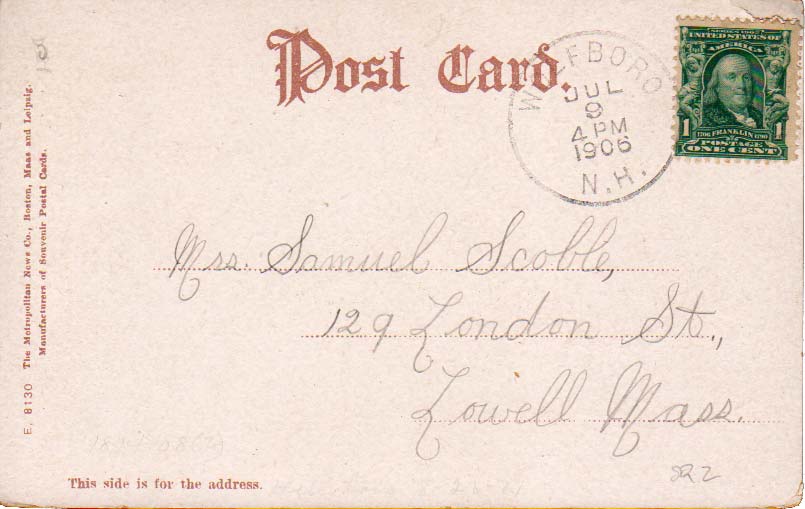 Post Card.
WOLFEBORO
JUL
9
4 PM
1906
N.H.
SERIES 1902
UNITED STATES OF
AMERICA
1 1706 FRANKLIN 1790 1
POSTAGE
ONE CENT
Mrs. Samuel Scoble,
129 London St.,
Lowell Mass.
822
This side is for the address.
E. 8130 The Metropolitan News Co., Boston, Mass and Leipzig.
Manufacturers of Souvenir Postal Cards.